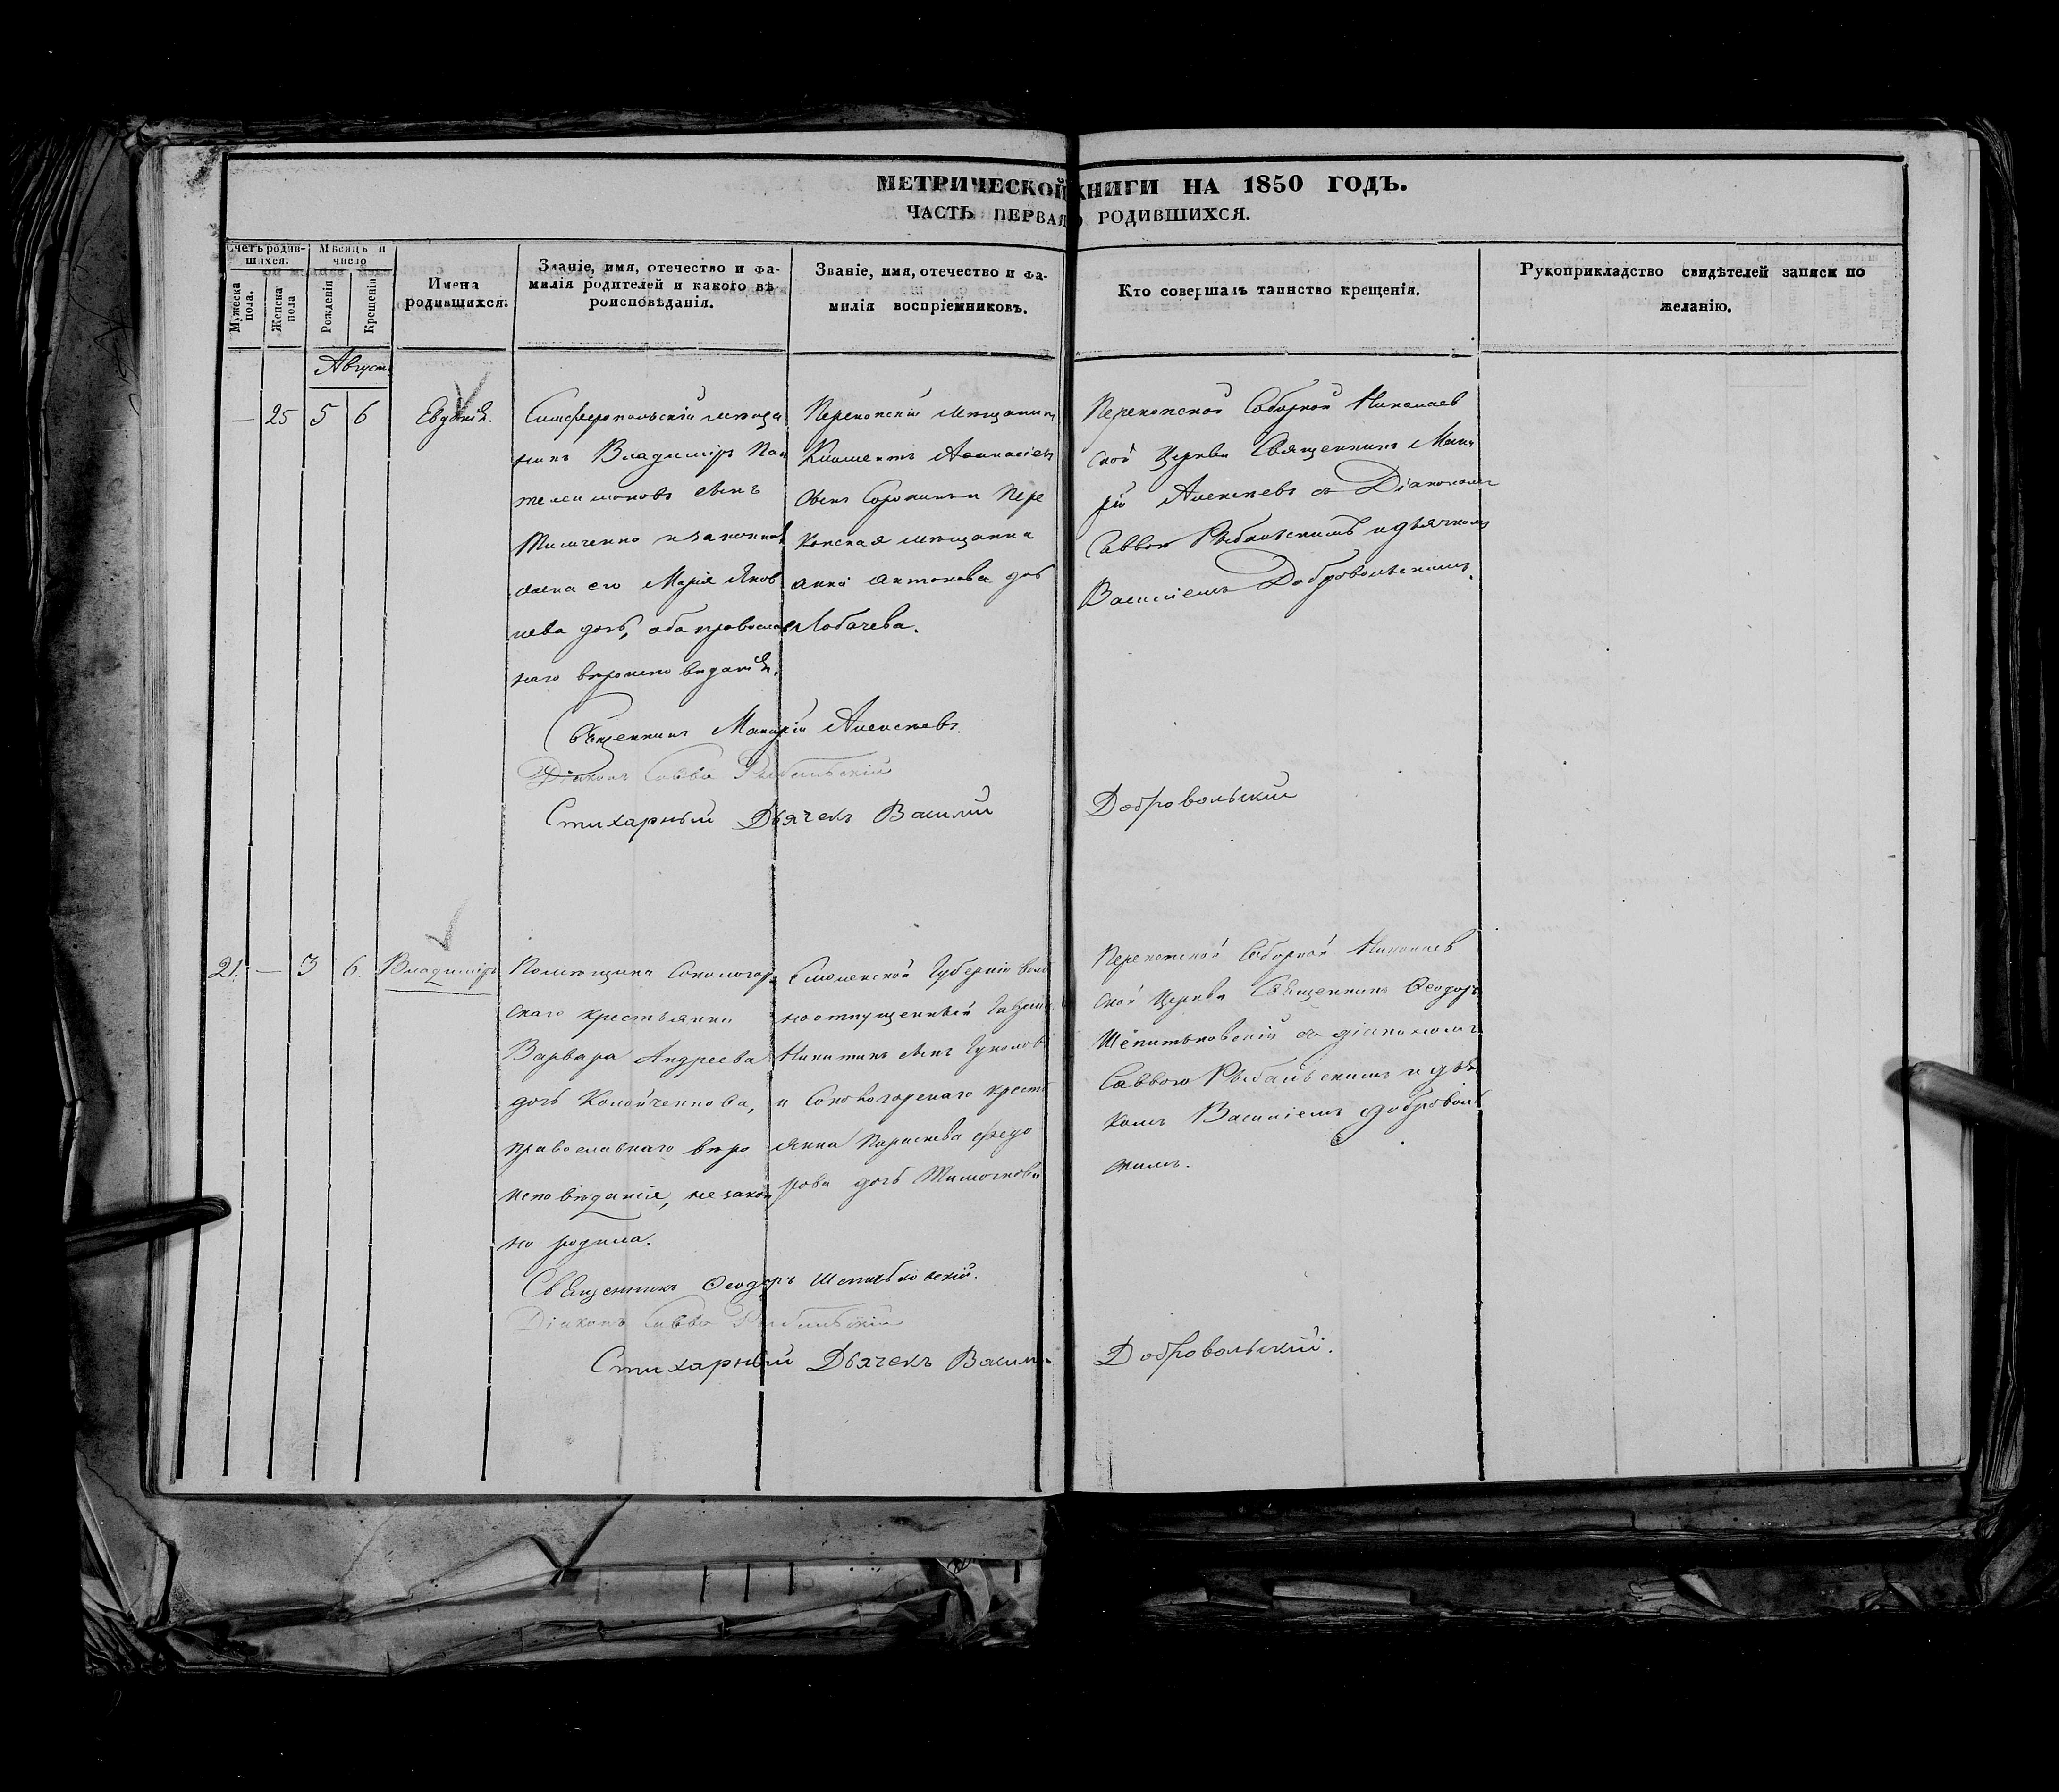 МЕТРИЧЕСКОЙ КНИГИ НА 1850 ГОДЪ.
ЧАСТЬ ПЕРВАЯ О РОДИВШИХСЯ.
Счетъ родив-
шихся.
Мужеска пола.
Женска пола
Мѣсяцъ и
число
Рожденія
Крещенія
Имена
родившихся.
Званіе, имя, отечество и фа-
милія родителей и какого вѣ-
роисповѣданія.
Званіе, имя, отечество и фа-
милія воспріемниковъ.
Кто совершалъ таинство крещенія.
Рукоприкладство свидѣтелей записи по
желанію.
Август.
— 25 5 6
Евдокія.
Симферопольскій мѣща
нинъ Владиміръ Пан
телимоновъ сынъ
Тимченко и законная
жена его Марія Яков
лева дочь, оба православ
наго вѣроисповѣданія.
Перекопскій мѣщанинъ
Климентъ Афанасіевъ
сынъ и Пере
копская мѣщанка
Анна Антонова дочь
Лобачева.
Перекопской Соборной Николаев
ской Церкви Священникъ Мака
рій Алексѣевъ съ Діакономъ
Саввою Рыбальскимъ и дьячкомъ
Василіемъ Добровольскимъ.
Священникъ Макарій Алексѣевъ.
Діаконъ Савва Рыбальскій
Стихарный Дьячекъ Василий
Добровольский
21. — 3 6.
Владиміръ
Помѣщика
скаго крестьянка
Варвара Андреева
дочь Коломченкова,
православнаго вѣро
исповѣданія, незакон
но родила.
Смоленской Губерніи воль
ноотпущенный Гаврилъ
Никитинъ сынъ
и крестья
янка Параскева Федо
рова дочь Тимошкова
Перекопской Соборной Николаев
ской Церкви Священникъ Феодоръ
Шепитьковскій съ діакономъ
Саввою Рыбальскимъ и дьяч
комъ Василіемъ Доброволь
скимъ.
Священникъ Феодоръ Шепитьковскій.
Діаконъ Савва Рыбальскій
Стихарный Дьячекъ Василий
Добровольский.